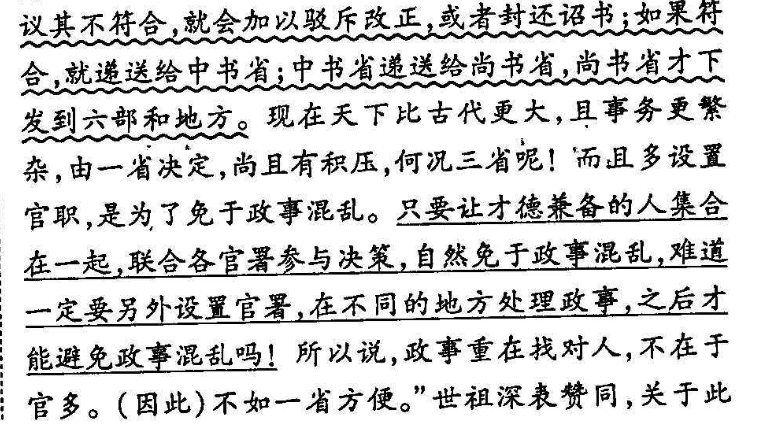 议其不符合,就会加以驳斥改正,或者封还诏书;如果符
合,就递送给中书省;中书省递送给尚书省,尚书省才下
发到六部和地方。现在天下比古代更大,且事务更繁
杂,由一省决定,尚且有积压,何况三省呢!而且多设置
官职,是为了免于政事混乱。只要让才德兼备的人集合
在一起,联合各官署参与决策,自然免于政事混乱,难道
一定要另外设置官署,在不同的地方处理政事,之后才
能避免政事混乱吗!所以说,政事重在找对人,不在于
官多。(因此)不如一省方便。”世祖深表赞同,关于此